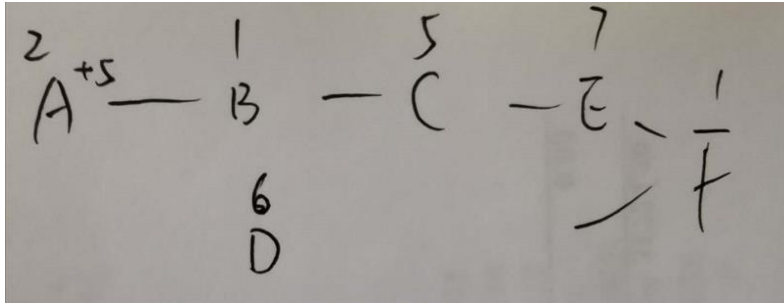 2 1 5 7
A +5 — B — C — E 1
F
6
D